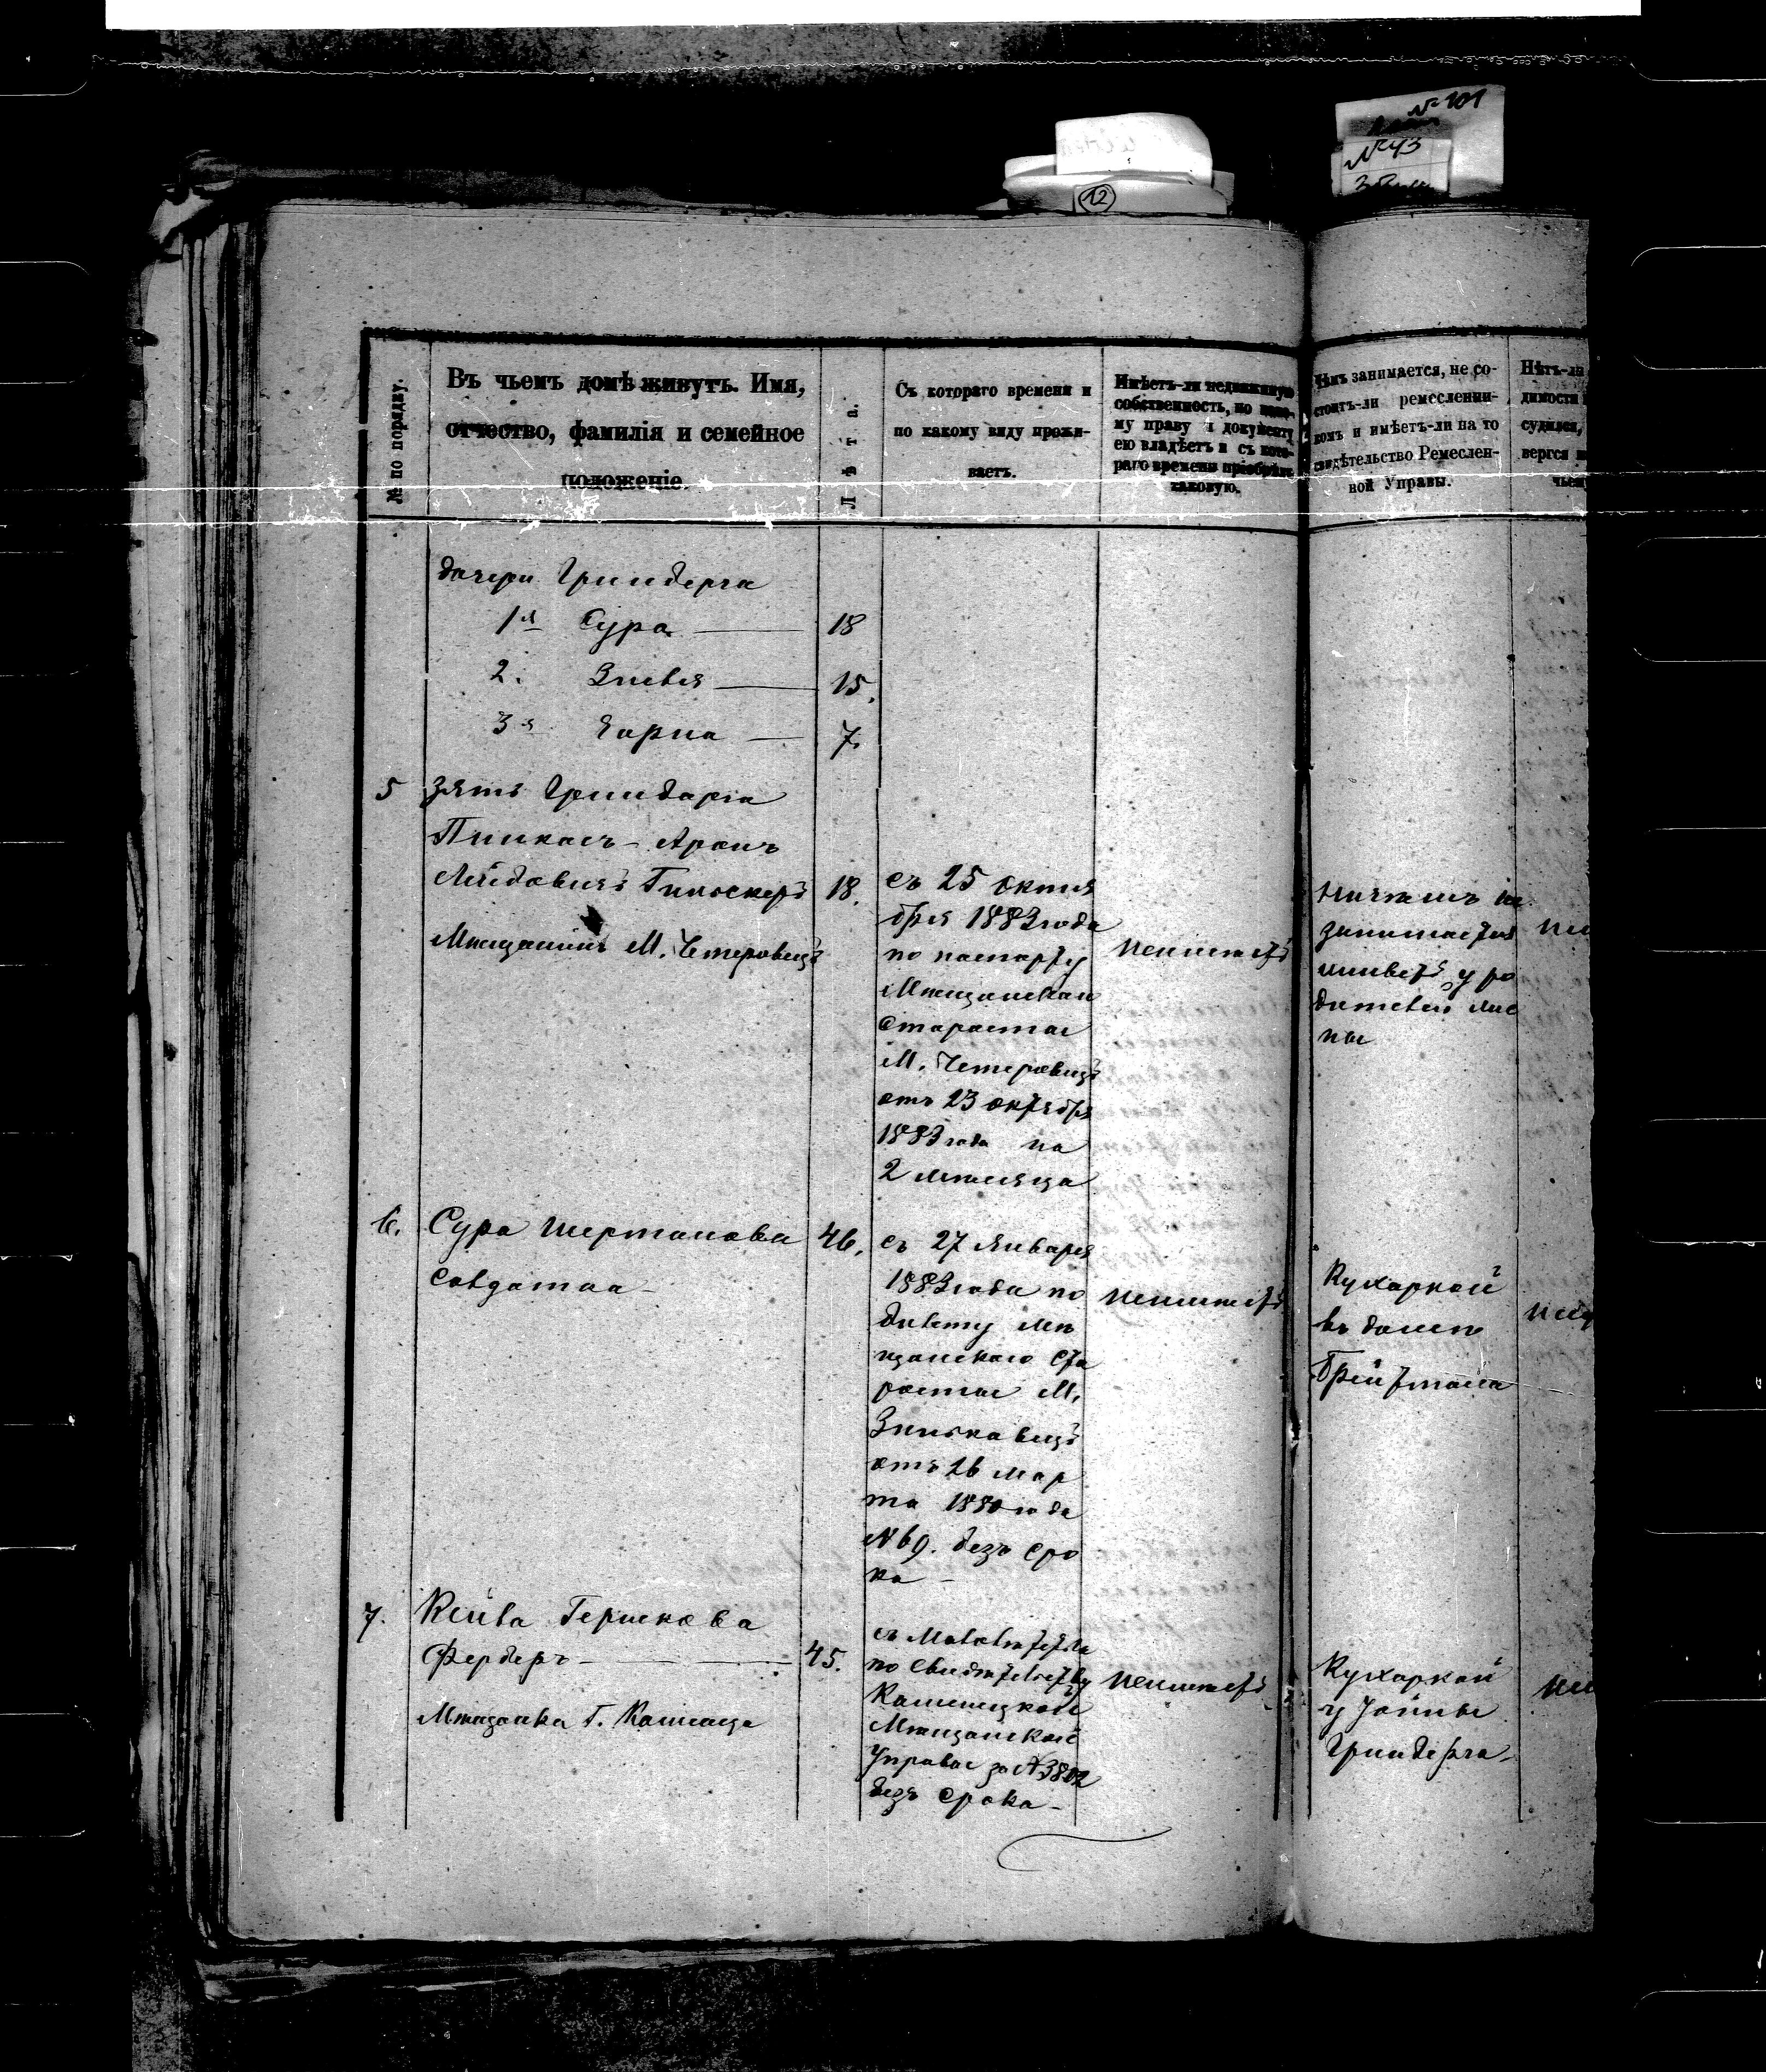 № 101
№ 43
12
№ по порядку.
Въ чьемъ домѣ живутъ. Имя,
отчество, фамилія и семейное
положеніе.
Лѣта.
Съ котораго времени и
по какому виду прожи-
ваетъ.
Имѣетъ-ли недвижимую
собственность, по како-
му праву и документу
ею владѣетъ и съ кото-
раго времени пріобрѣлъ
таковую.
Чѣмъ занимается, не со-
стоитъ-ли ремесленни-
комъ и имѣетъ-ли на то
свидѣтельство Ремеслен-
ной Управы.
Нѣтъ-ли
димости
судился,
вергся
чьем
дочери Гринберга
1я Сура — 18
2. Зислья — 15.
3я — 7.
5 зять Гринберга
Пинкасъ-Аронъ
Лейбовичъ 18.
Мещанинъ М. Чемеровецъ
съ 25 октя
бря 1883 года
по паспорту
Мещанскаго
Старосты
М. Чемеровецъ
отъ 23 октября
1883 года на
2 мѣсяца
неимѣетъ
ничѣмъ не
занимается
живетъ у ро
дителей же
ны
6. Сура Шерманова 46.
Солдатка
съ 27 Января
1883 года по
билету Мѣ
щанскаго Ста
росты М.
Зиньковецъ
отъ 26 мар
та 1880 года
№ 69. безъ сро
ка —
неимѣетъ
Кухаркой
въ доме
Брейтмана
7. Кейла Гершкова
Ферберъ — 45.
Мѣщанка Г. Каменца
съ Маловѣтства
по Свидѣтельству
Каменецкой
Мѣщанской
Управы за № 3802
безъ срока —
неимѣетъ
Кухаркой
у Іойны
Гринберга